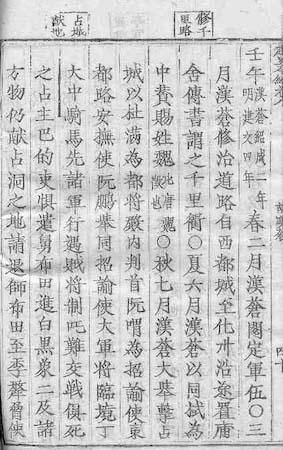 修千
里路
占城
献地
壬午漢蒼紹成二年明建文四年春二月漢蒼閱定軍伍○三
月漢蒼修治道路自西都城至化州沿途置庸
舍傳書謂之千里衢○夏六月漢蒼以同栻為
中賛賜姓魏比唐魏徵也○秋七月漢蒼大舉擊占
城以杜滿為都將殿內判首阮謂為招諭使東
都路安撫使阮鵬舉同招諭使大軍將臨境丁
大中騎馬先諸軍行遇賊將制叱難交戰俱死
之占主巴的吏懼遣舅布田進白黑象二及諸
方物仍献占洞之地請退師布田至季犛脅使